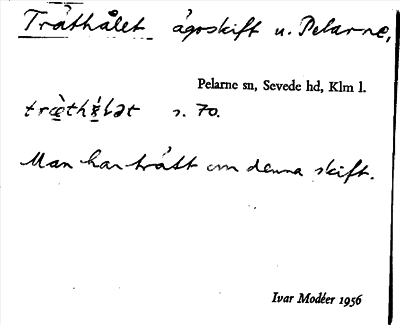 Tråthålet ågoskift u. Pelarne,
Pelarne sn, Sevede hd, Klm l.
s. 70.
Man har trått om denna skift.
Ivar Modéer 1956